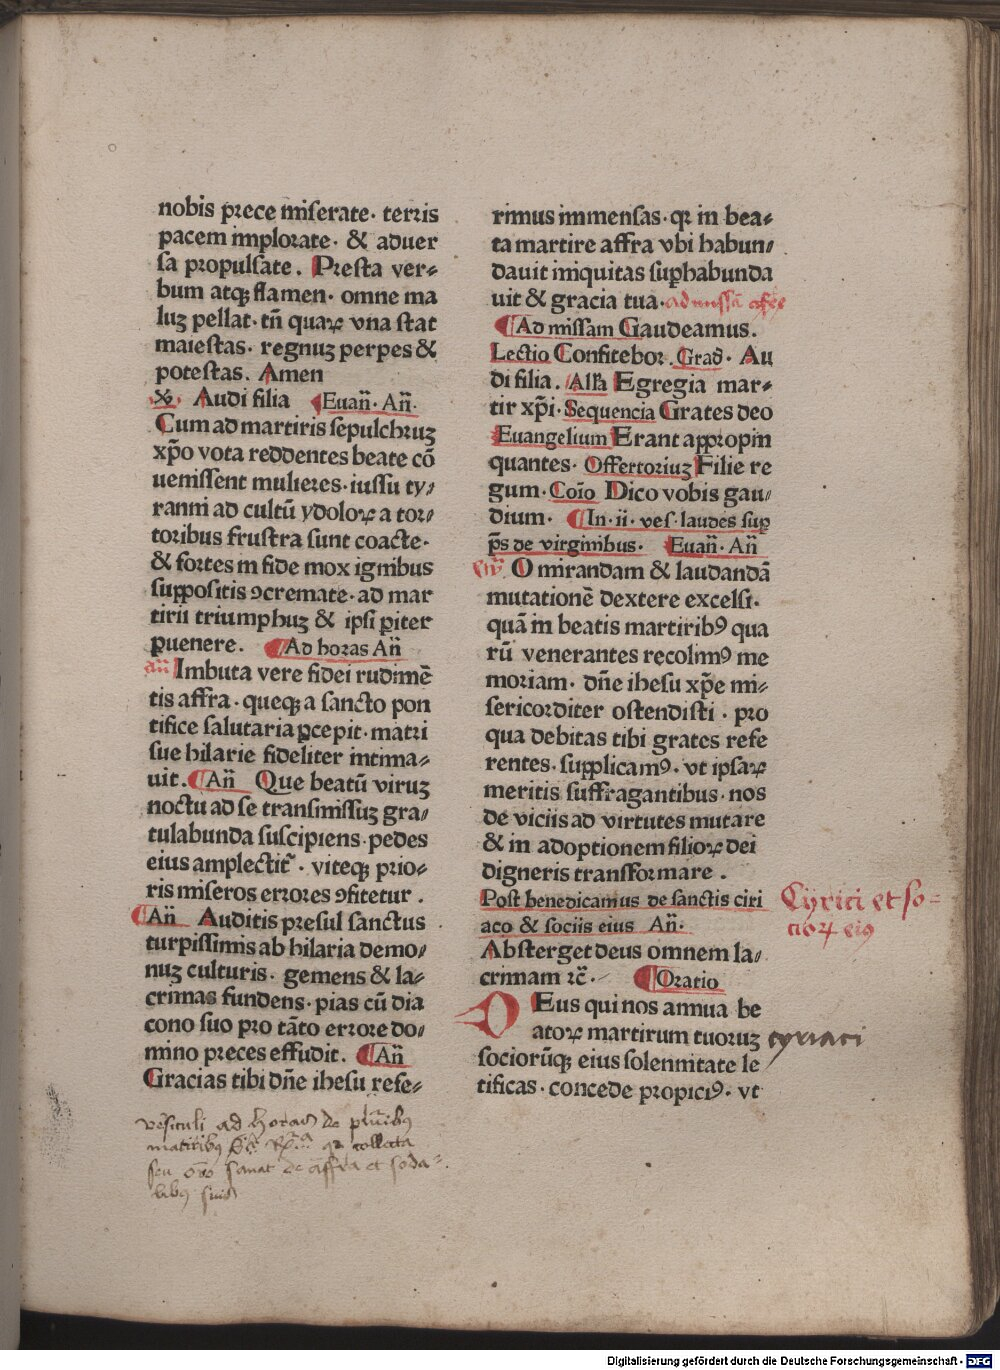 nobis prece miserate· terris
pacem implorate· & aduer
sa propulsate. Presta ver⸗
bum atqꝫ flamen· omne ma
luꝫ pellat· tñ quaꝝ vna stat
maiestas· regnuꝫ perpes &
potestas. Amen
Audi filia Euañ· Añ·
Cum ad martiris sepulchruꝫ
xp̄o vota reddentes beate cō
uenissent mulieres· iussu ty⸗
ranni ad cultū ydoloꝝ a tor⸗
toribus frustra sunt coacte·
& fortes in fide mox ignibus
suppositis ꝯcremate· ad mar
tirii triumphuꝫ & ipsi ꝑiter
ꝑuenere. Ad horas Añ
añ Imbuta vere fidei rudimē
tis affra· queqꝫ a sancto pon
tifice salutaria ꝑcepit· matri
sue hilarie fideliter intima⸗
uit. Añ Que beatū viruꝫ
noctu ad se transmissuꝫ gra⸗
tulabunda suscipiens· pedes
eius amplectit᷑· viteqꝫ prio⸗
ris miseros errores ꝯfitetur.
Añ Auditis presul sanctus
turpissimis ab hilaria demo⸗
nuꝫ culturis· gemens & la⸗
crimas fundens· pias cū dia
cono suo pro tāto errore do⸗
mino preces effudit. Añ
Gracias tibi dn̄e ihesu refe⸗
versiculi ad horas de pluribus
collecta
de affra et soda⸗
libus suis
rimus immensas· qꝛ in bea⸗
ta martire affra vbi habun⸗
dauit iniquitas suꝑhabunda
uit & gracia tua· ad missā
Ad missam Gaudeamus.
Lectio Confitebor. Grad̄· Au
di filia. Alła Egregia mar⸗
tir xp̄i· Sequencia Grates deo
Euangelium Erant appropin
quantes· Offertoriuꝫ Filie re
gum· Cōio Dico vobis gau⸗
dium· In·ii·ves·laudes suꝑ
p̄s de virginibus· Euañ· Añ
O mirandam & laudandā
mutationē dextere excelsi·
quā in beatis martiribꝰ qua
rū venerantes recolimꝰ me
moriam· dn̄e ihesu xp̄e mi⸗
sericorditer ostendisti· pro
qua debitas tibi grates refe
rentes· supplicamꝰ· vt ipsaꝝ
meritis suffragantibus· nos
de viciis ad virtutes mutare
& in adoptionem filioꝝ dei
digneris transformare.
Post benedicamus de sanctis ciri
aco & sociis eius Añ·
Cyrici et so⸗
cioꝝ eiꝰ
Absterget deus omnem la⸗
crimam ⁊c̄· Oratio
DEus qui nos annua be
atoꝝ martirum tuoruꝫ cyriaci
sociorūqꝫ eius solennitate le
tificas· concede propiciꝰ· vt
Digitalisierung gefördert durch die Deutsche Forschungsgemeinschaft · DFG